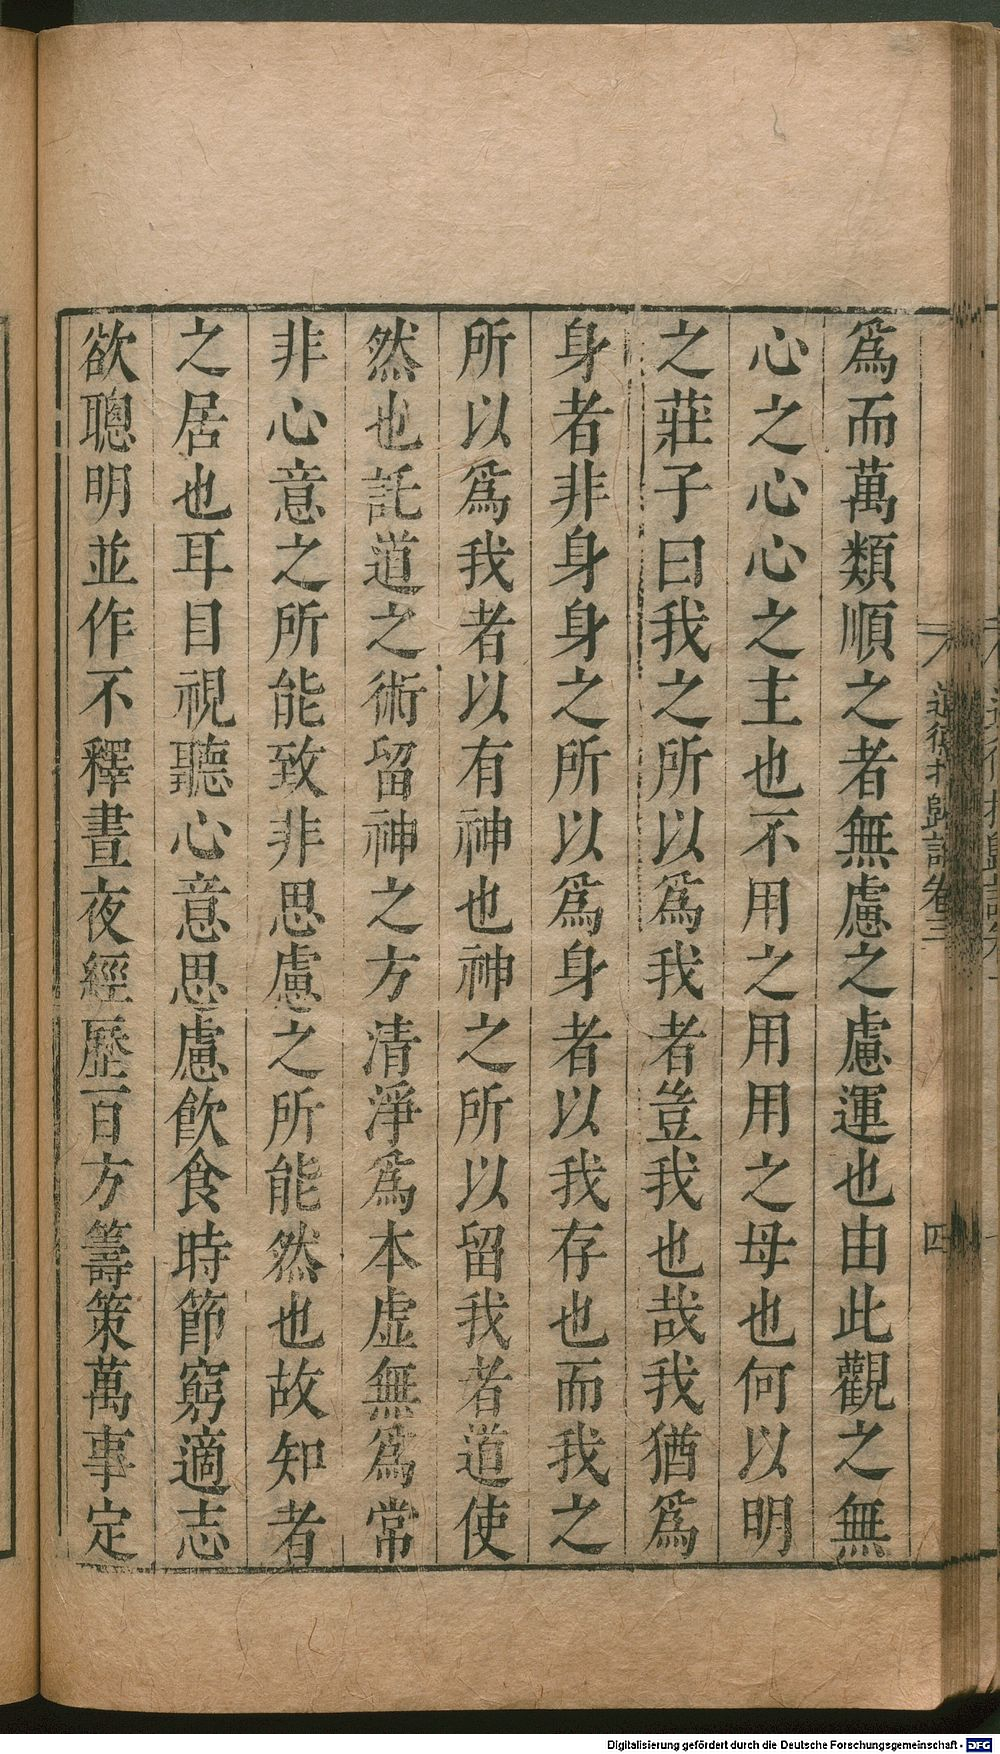 爲而萬類順之者無慮之慮運也由此觀之無
心之心心之主也不用之用用之母也何以明
之莊子曰我之所以爲我者豈我也哉我猶爲
身者非身身之所以爲身者以我存也而我之
所以爲我者以有神也神之所以留我者道使
然也託道之術留神之方清淨爲本虛無爲常
非心意之所能致非思慮之所能然也故知者
之居也耳目視聽心意思慮飮食時節窮適志
欲聰明並作不釋晝夜經歷百方籌策萬事定
道德指歸論卷三
四
Digitalisierung gefördert durch die Deutsche Forschungsgemeinschaft - DFG